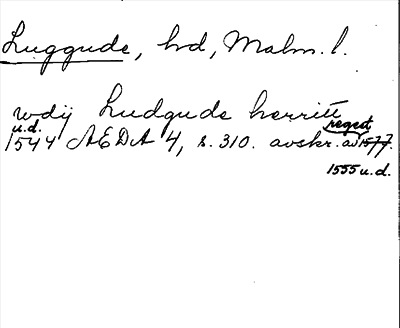 Luggude, hd, Malm. l.
wdij Ludgude herritt
u.d. regest
1544 AEDA 4, s. 310. avskr. av 1577.
1555 u.d.